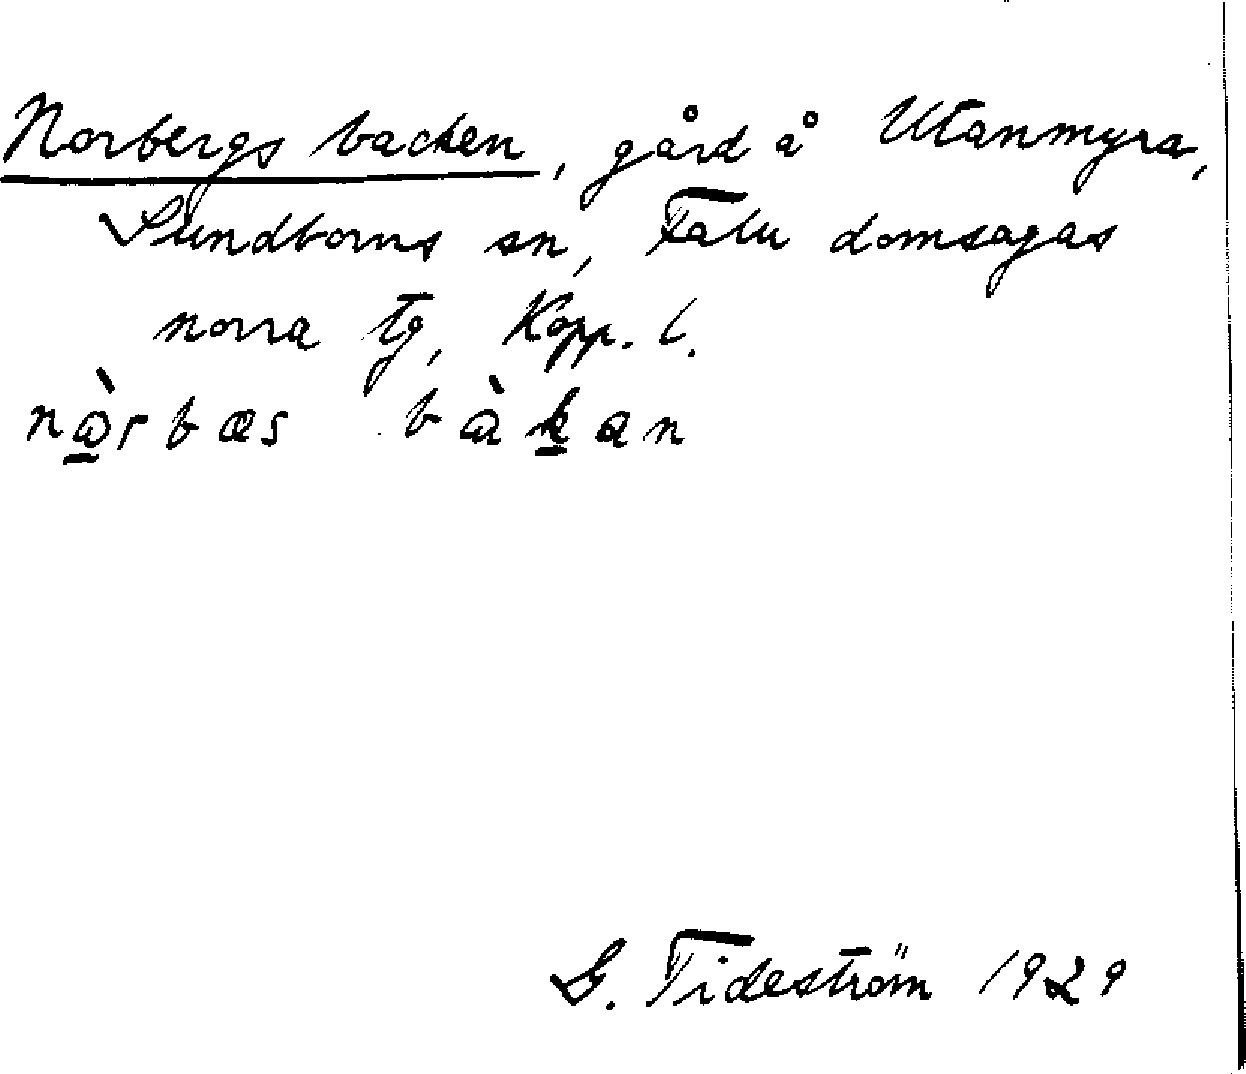 Norbergs backen, gård å Utanmyra,
Sundborns sn, Falu domsagas
norra tg, Kopp. l.
nàrbæs bàkan
G. Tideström 1929